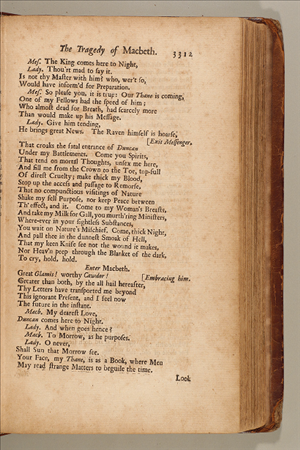 The Tragedy of Macbeth. 3312
Mes. The King comes here to Night,
Lady. Thou'rt mad to say it.
Is not thy Master with him? who, wer't so,
Would have inform'd for Preparation.
Mes. So please you, it is true: Our Thane is coming,
One of my Fellows had the speed of him;
Who almost dead for Breath, had scarcely more
Than would make up his Message.
Lady. Give him tending,
He brings great News. The Raven himself is hoarse,
[Exit Messenger.
That croaks the fatal entrance of Duncan
Under my Battlements. Come you Spirits,
That tend on mortal Thoughts, unsex me here,
And fill me from the Crown to the Toe, top-full
Of direst Cruelty; make thick my Blood,
Stop up the access and passage to Remorse,
That no compunctious visitings of Nature
Shake my fell Purpose, nor keep Peace between
Th'effect, and it. Come to my Woman's Breasts,
And take my Milk for Gall, you murth'ring Ministers,
Where-ever in your sightless Substances,
You wait on Nature's Mischief. Come, thick Night,
And pall thee in the dunnest Smoak of Hell,
That my keen Knife see not the wound it makes,
Nor Heav'n peep through the Blanket of the dark,
To cry, hold, hold.
Enter Macbeth.
Great Glamis! worthy Cawdor! [Embracing him.
Greater than both, by the all hail hereafter,
Thy Letters have transported me beyond
This ignorant Present, and I feel now
The future in the instant.
Macb. My dearest Love,
Duncan comes here to Night.
Lady. And when goes hence?
Macb. To Morrow, as he purposes.
Lady. O never,
Shall Sun that Morrow see.
Your Face, my Thane, is as a Book, where Men
May read strange Matters to beguile the time.
Look